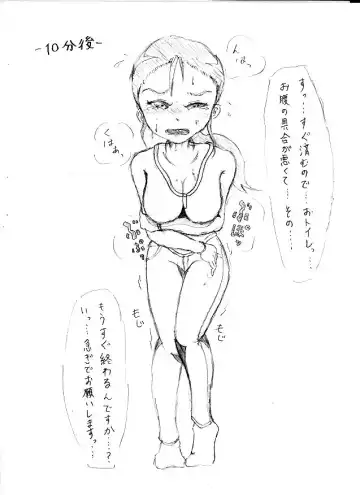 -10分後-
んはぁっ
くはぁっ
すっ…すぐ済むので…おトイレっ…
お腹の具合が悪くて…その……
もじ
もじ
もうすぐ終わるんですか…？
いっ…急ぎでお願いしますっ…